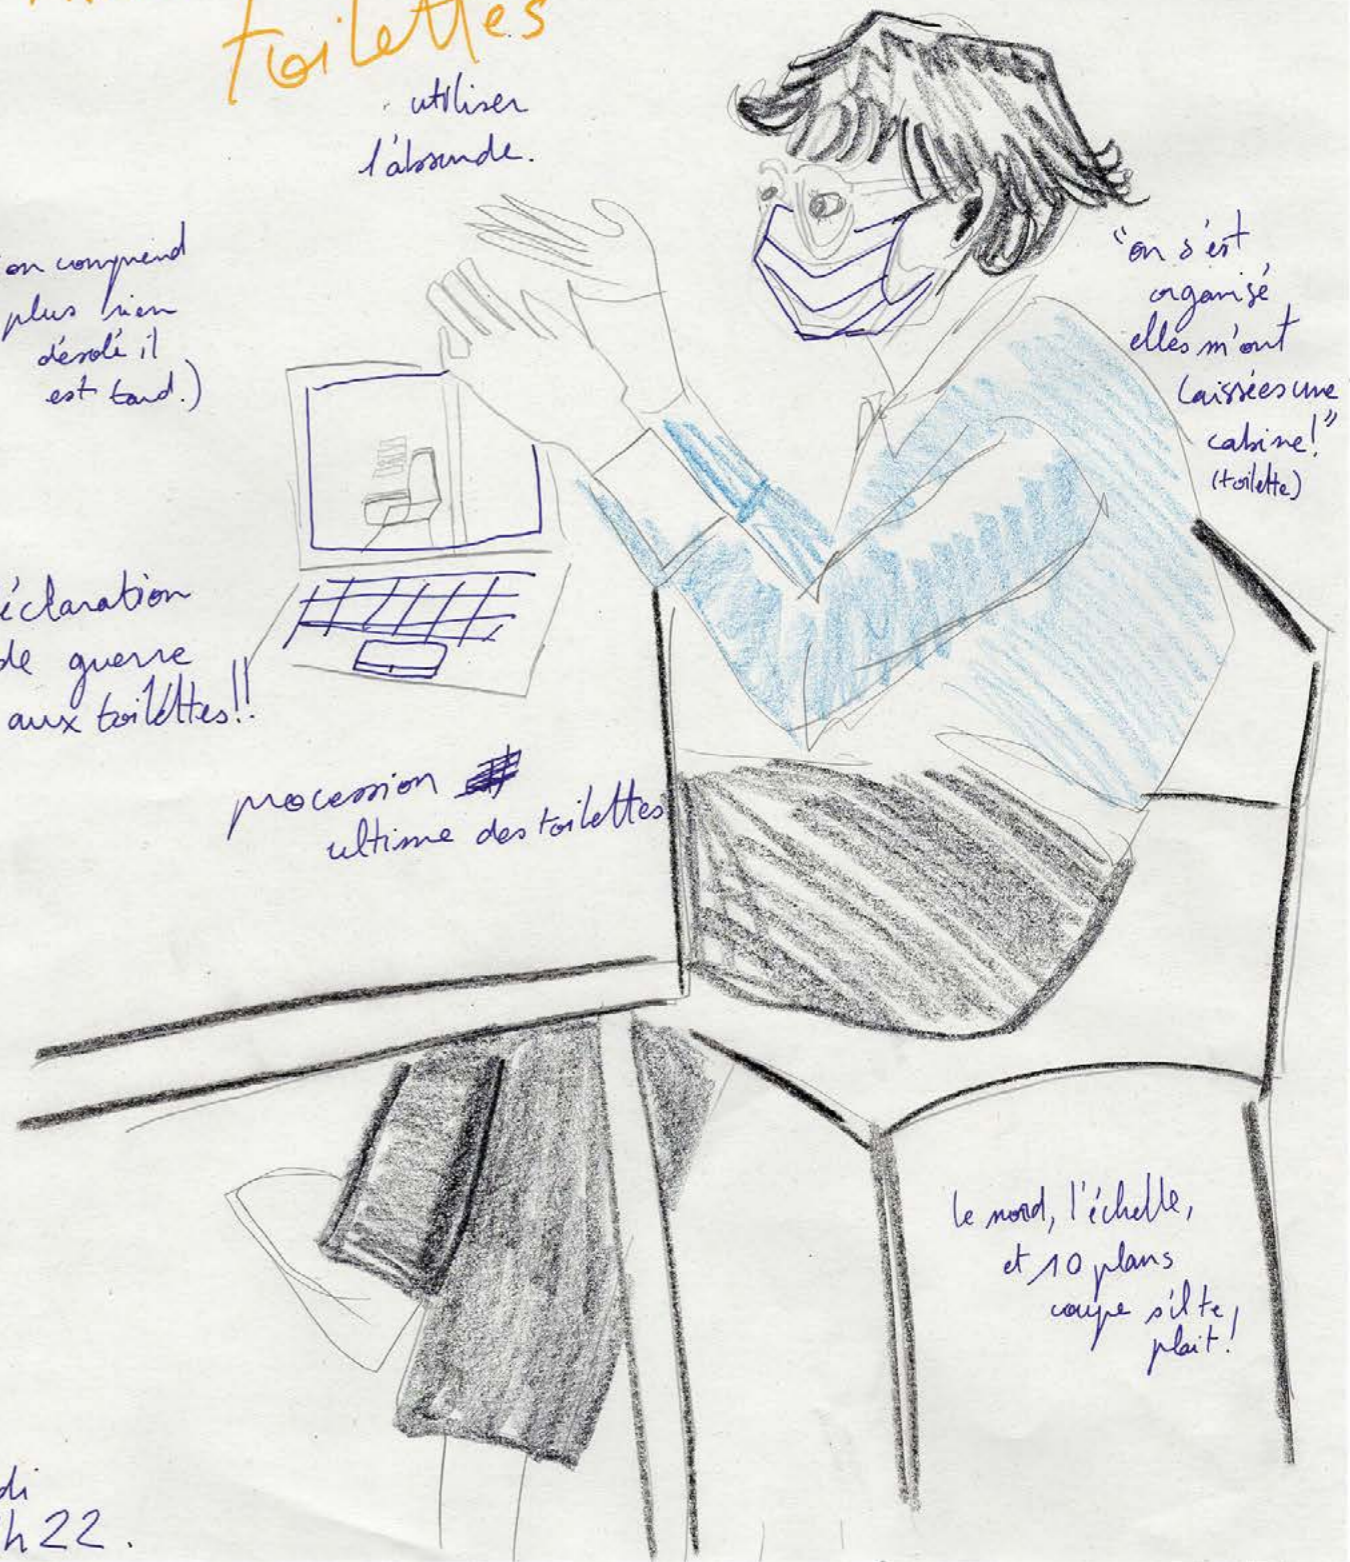 toilettes
utiliser
l'absurde.
on comprend
plus rien
désolé il
est tard.)
"on s'est
organisé,
elles m'ont
laissées une
cabine!"
(toilette)
éclaration
de guerre
aux toilettes!!
procession
ultime des toilettes
le nord, l'échelle,
et 10 plans
coupe s'il te
plait!
di
h22.